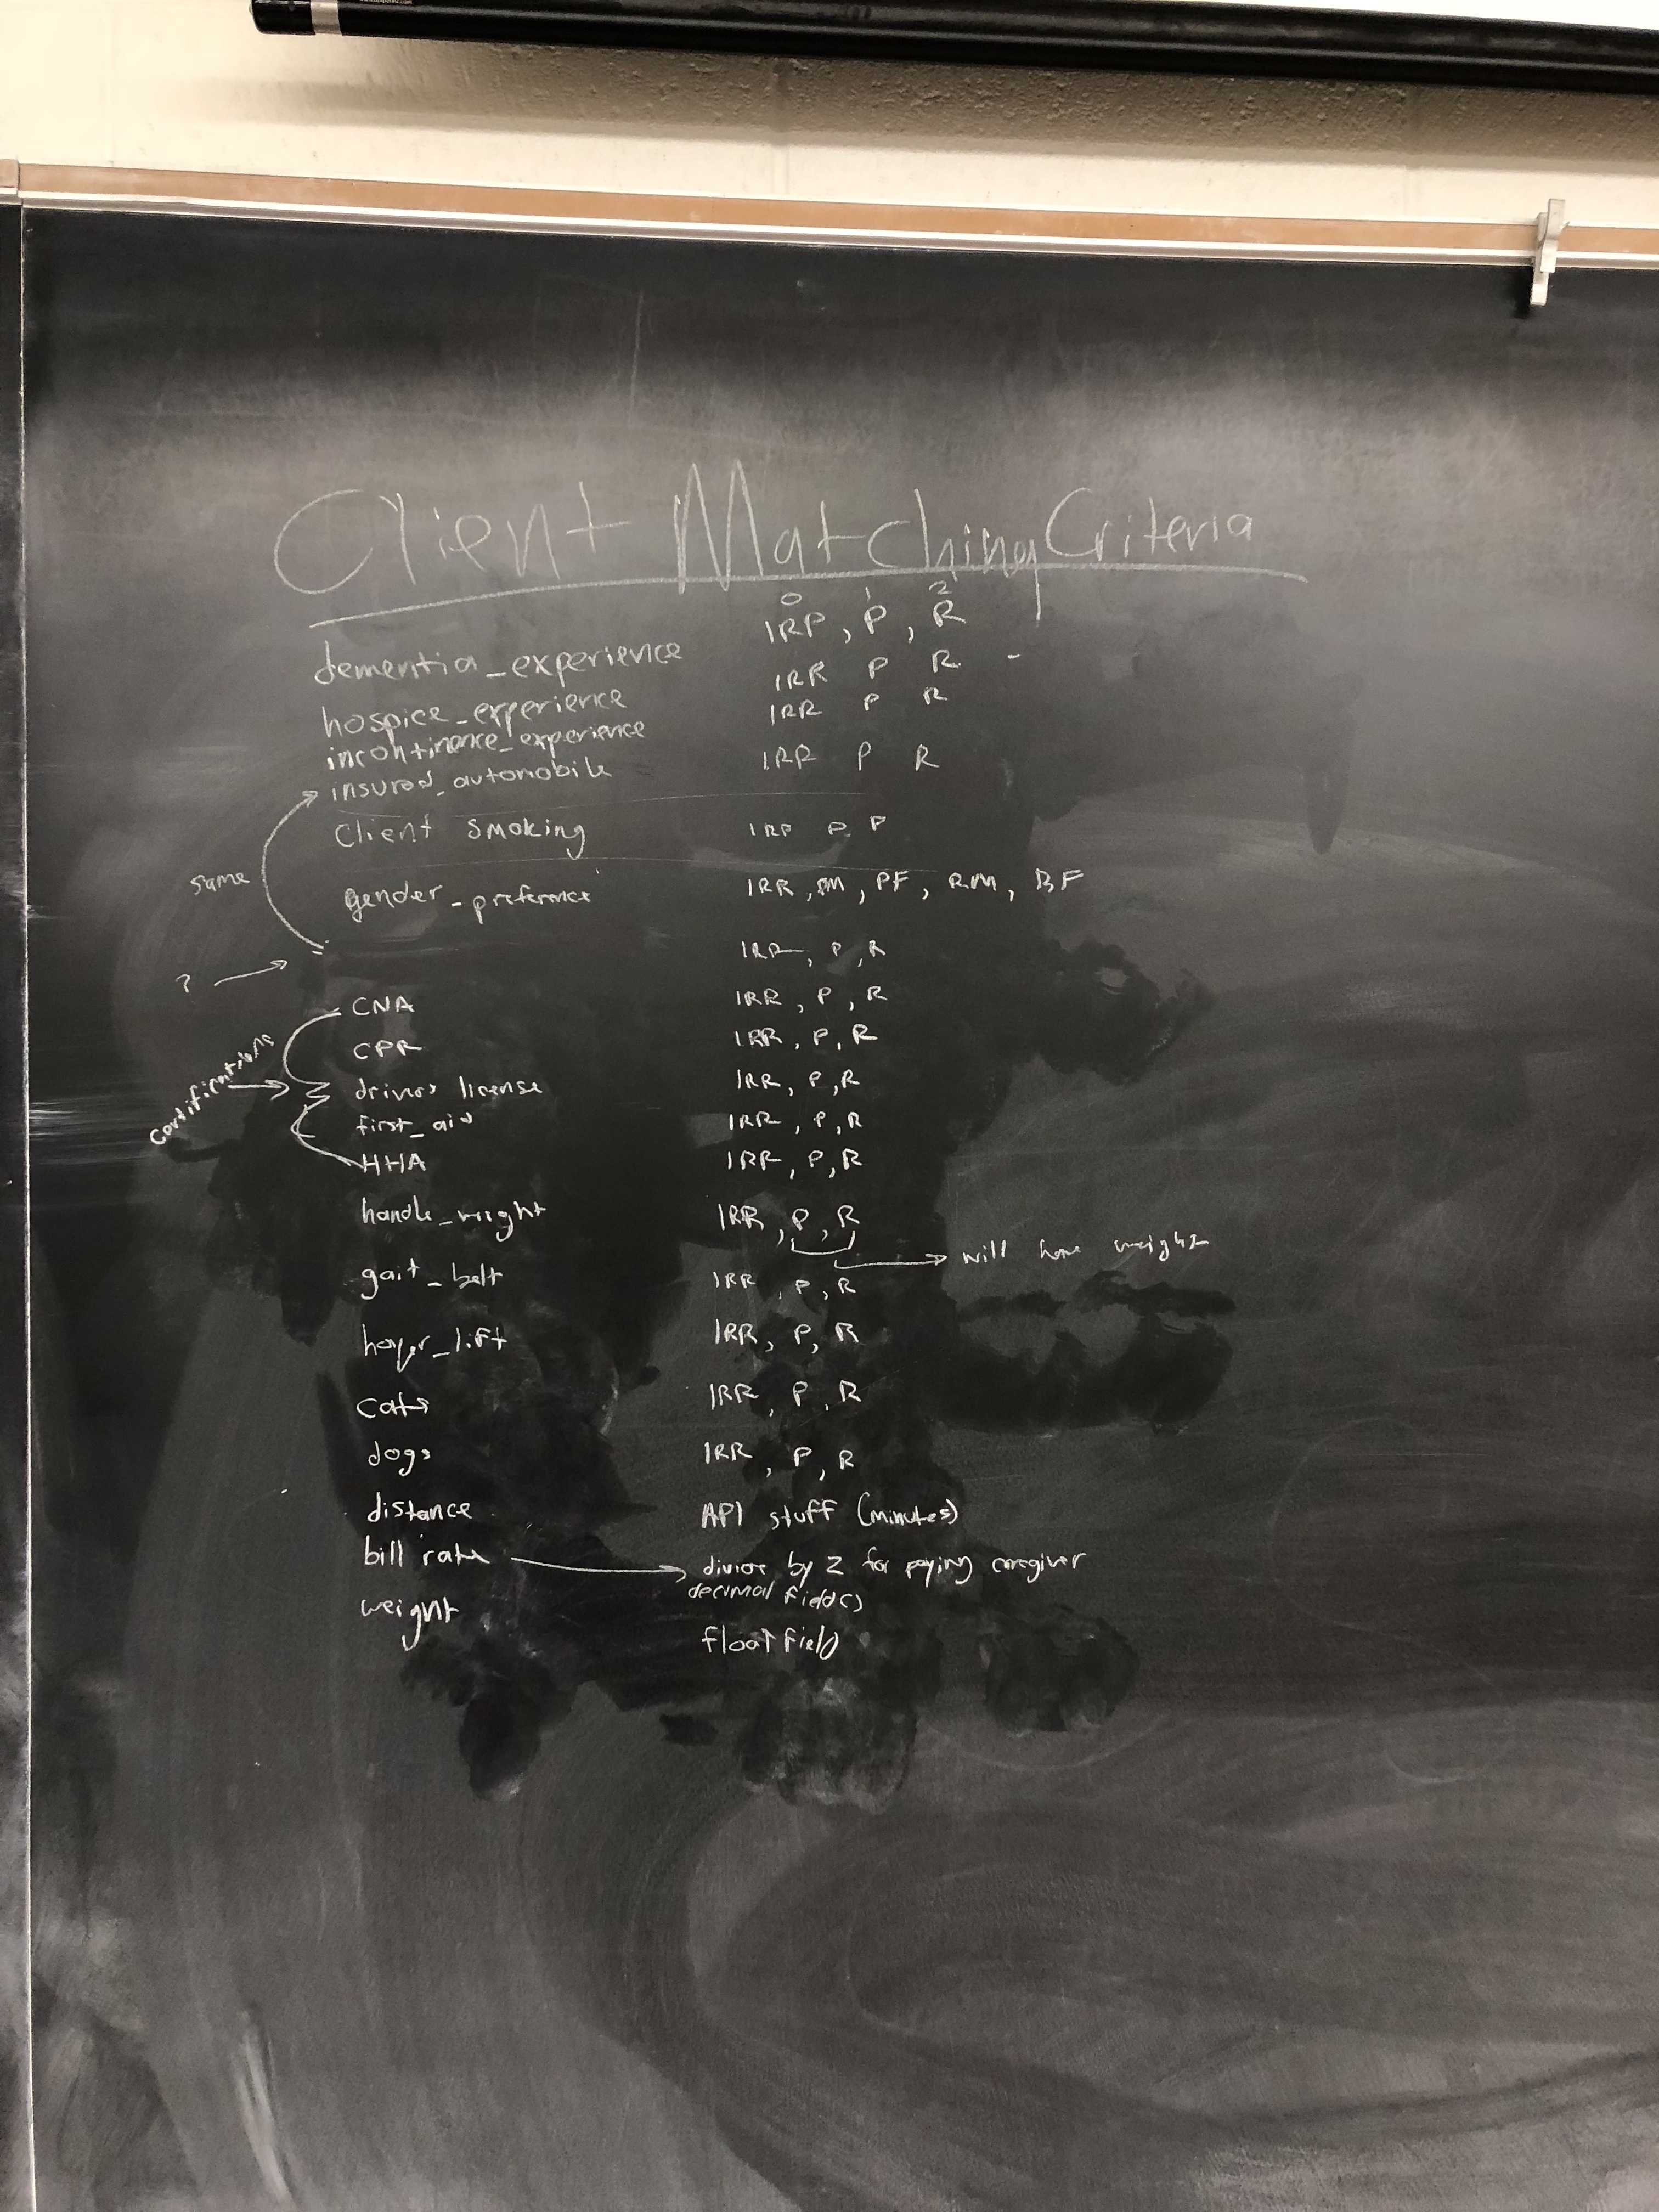 Client Matching Criteria
0 1 2
dementia_experience IRP, P, R
hospice_experience IRR P R -
incontinence_experience IRR P R
insured_automobile IRR P R
Client smoking IRP P P
same
gender_preference IRR, PM, PF, RM, RF
IRR, P, R
?
CNA IRR, P, R
CPR IRR, P, R
Certifications
drivers license IRR, P, R
first_aid IRR, P, R
HHA IRR, P, R
handle_weight IRR, P, R
will have weight
gait_belt IRR, P, R
hoyer_lift IRR, P, R
cats IRR, P, R
dogs IRR, P, R
distance API stuff (minutes)
bill rate divide by 2 for paying caregiver
decimal field()
weight floatfield